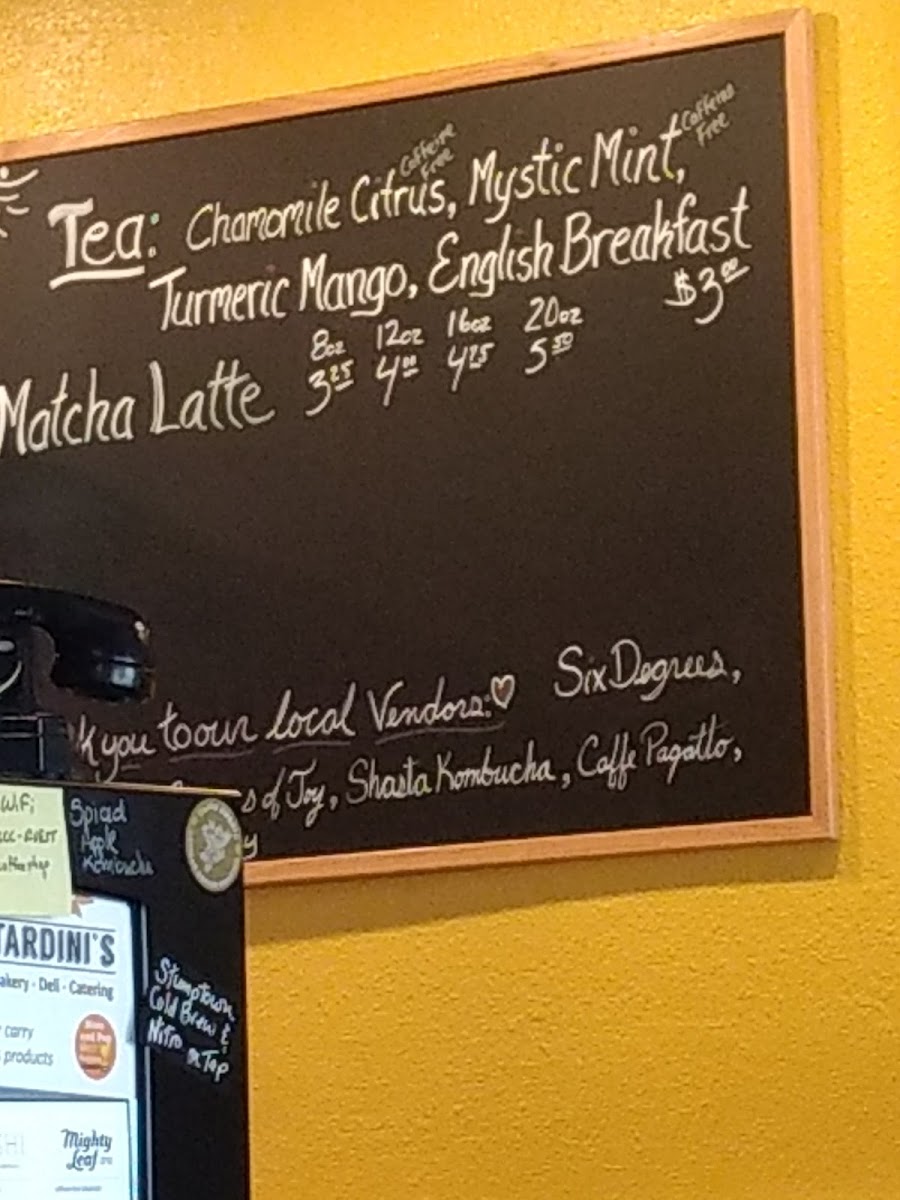 Tea: Chamomile Citrus, Mystic Mint,
Caffeine Free
Caffeine Free
Turmeric Mango, English Breakfast
$3.00
8oz 12oz 16oz 20oz
Matcha Latte 3.25 4.00 4.75 5.50
k you to our local Vendors: Six Degrees,
s of Joy, Shasta Kombucha, Caffe Pagatto,
y
WiFi
Spiced
Apple
Kombucha
TARDINI'S
akery - Deli - Catering
carry
products
Stumptown
Cold Brew &
Nitro on Tap
Mighty
Leaf